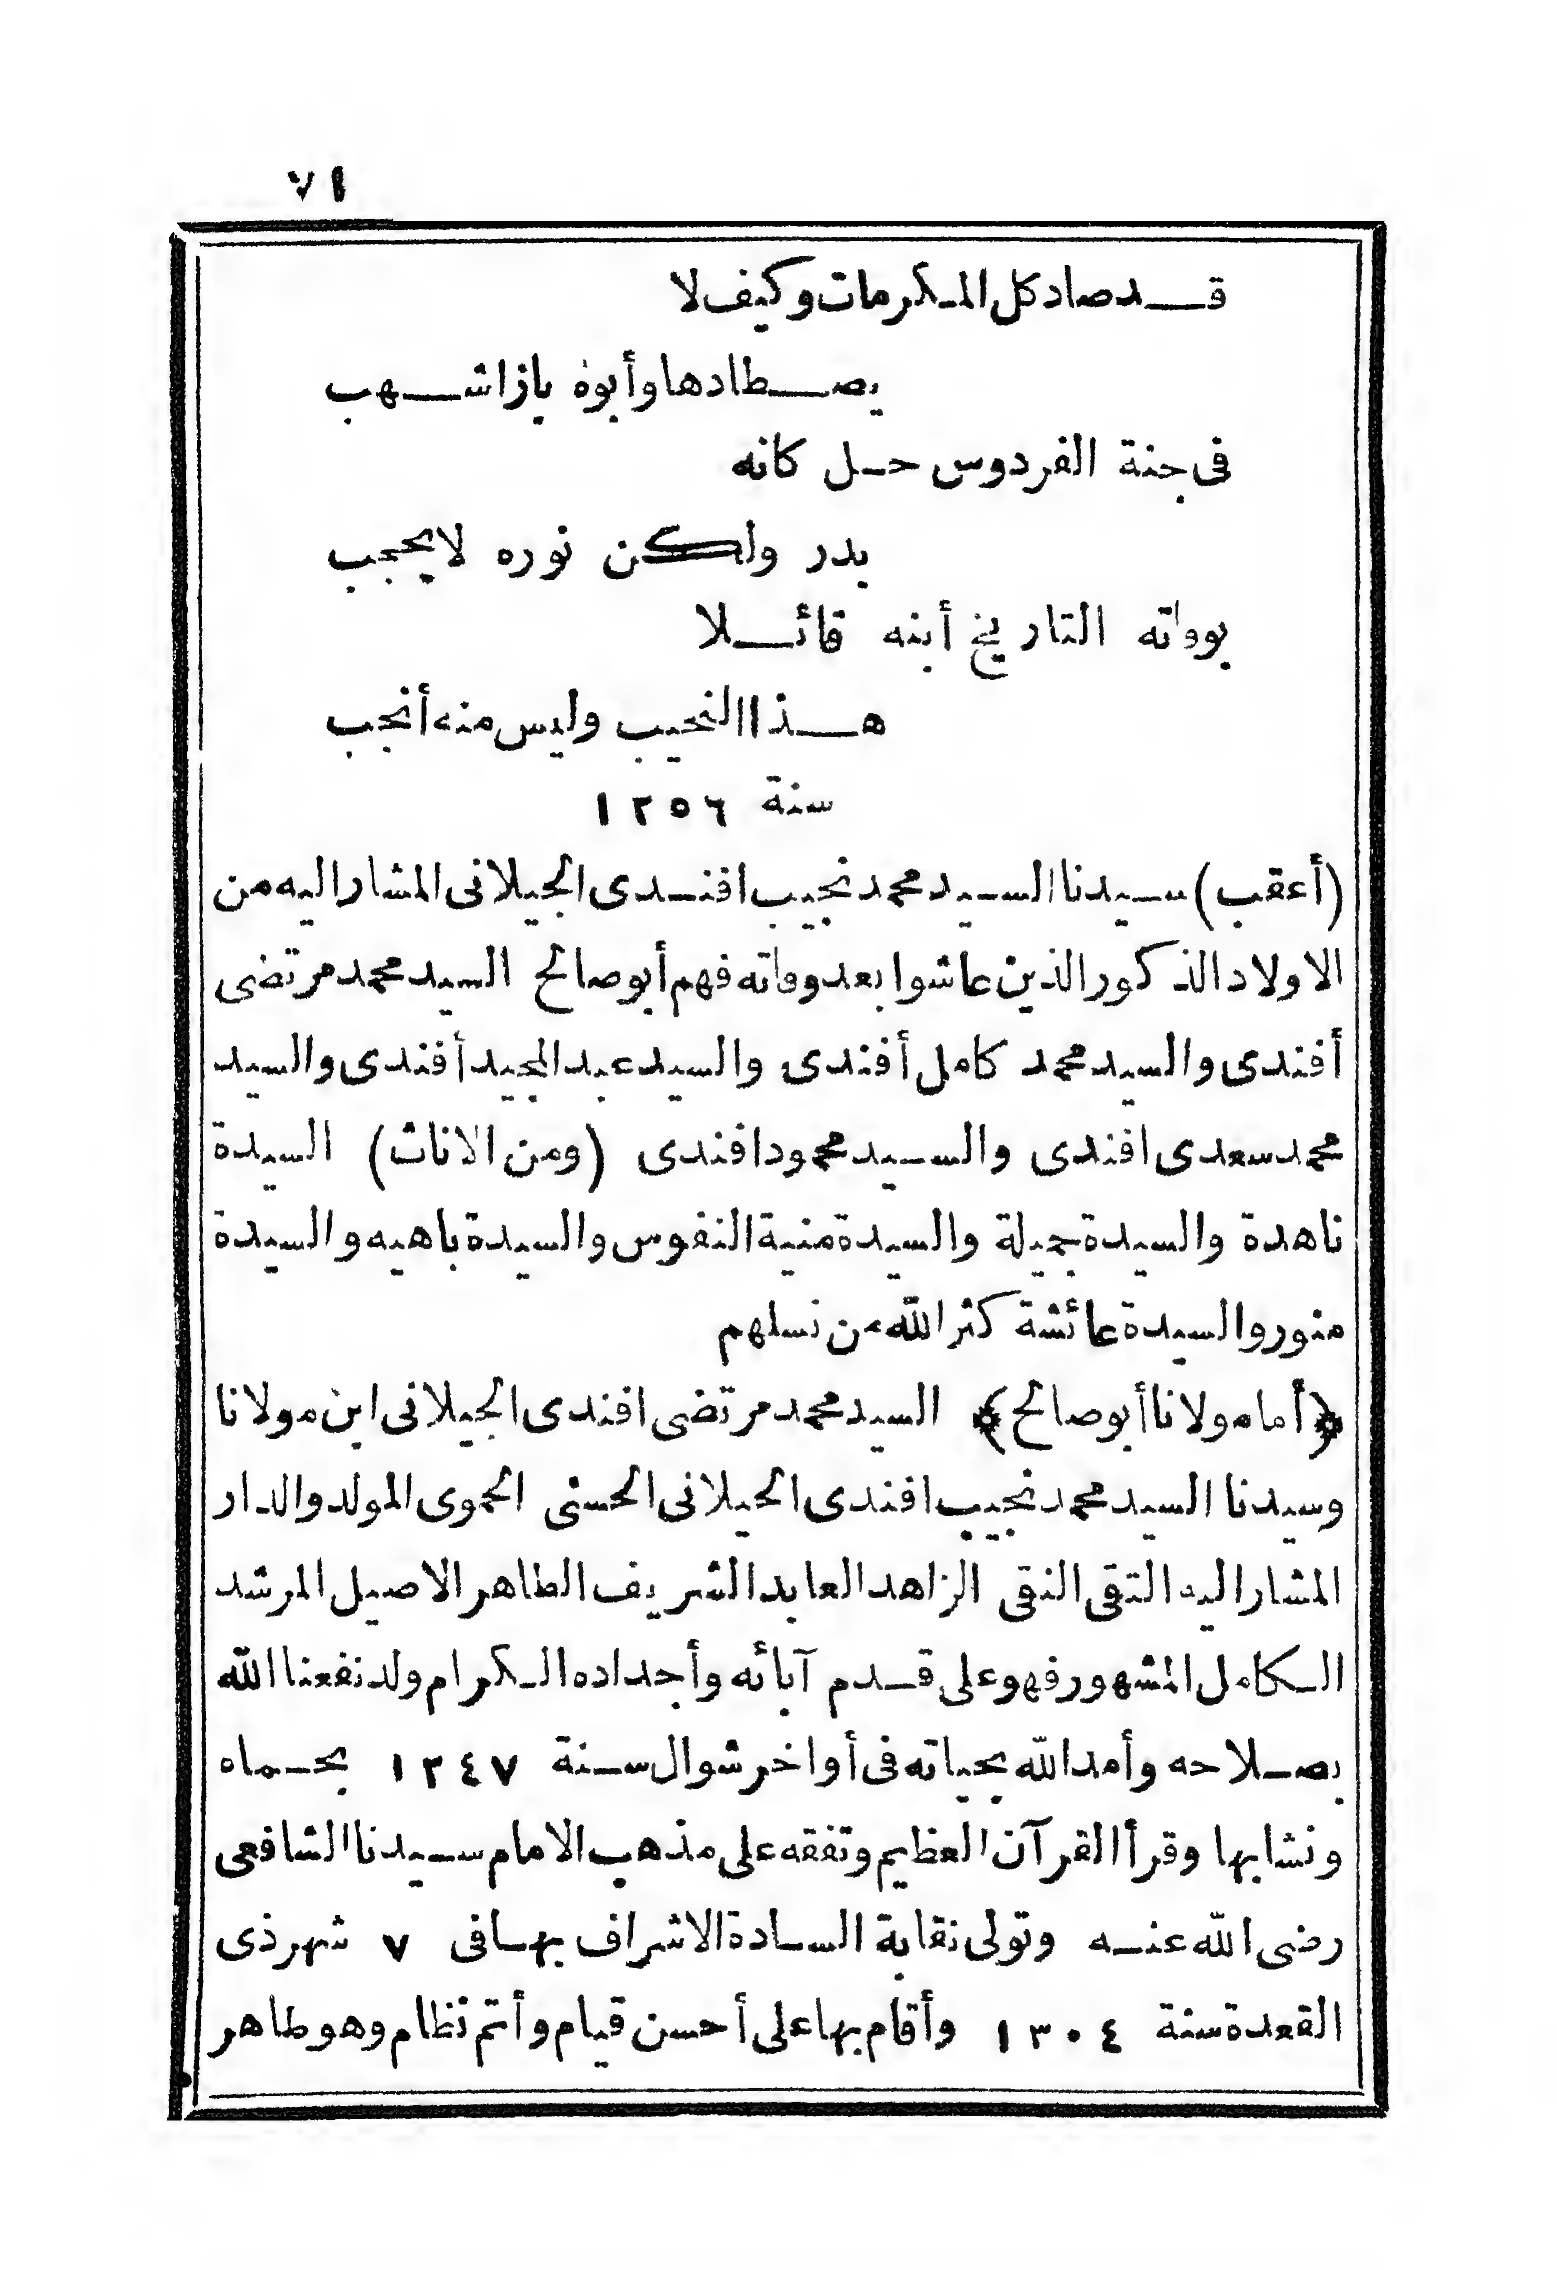 ٧١
قد صاد كل المكرمات وكيف لا
يصطادها وأبوه باز اشهب
فى جنة الفردوس حل كانه
بدر ولكن نوره لا يحجب
بوفاته التاريخ أبنه قائلا
هذا النجيب وليس منه أنجب
سنة ١٢٥٦
(أعقب) سيدنا السيد محمد نجيب افندى الجيلانى المشار اليه من
الاولاد الذكور الذين عاشوا بعد وفاته فهم أبو صالح السيد محمد مرتضى
أفندى والسيد محمد كامل أفندى والسيد عبد المجيد أفندى والسيد
محمد سعدى افندى والسيد محمود افندى (ومن الاناث) السيدة
ناهدة والسيدة جميلة والسيدة منية النفوس والسيدة باهيه والسيدة
منور والسيدة عائشة كثر الله من نسلهم
﴿أما مولانا أبو صالح﴾ السيد محمد مرتضى افندى الجيلانى ابن مولانا
وسيدنا السيد محمد نجيب افندى الجيلانى الحسنى الحموى المولد والدار
المشار اليه التقى النقى الزاهد العابد الشريف الطاهر الاصيل المرشد
الكامل المشهور فهو على قدم آبائه وأجداده الكرام ولد نفعنا الله
بصلاحه وأمد الله بحياته فى أواخر شوال سنة ١٢٤٧ بحماه
ونشا بها وقرأ القرآن العظيم وتفقه على مذهب الامام سيدنا الشافعى
رضى الله عنه وتولى نقابة السادة الاشراف بها فى ٧ شهر ذى
القعدة سنة ١٣٠٤ وأقام بها على أحسن قيام وأتم نظام وهو طاهر